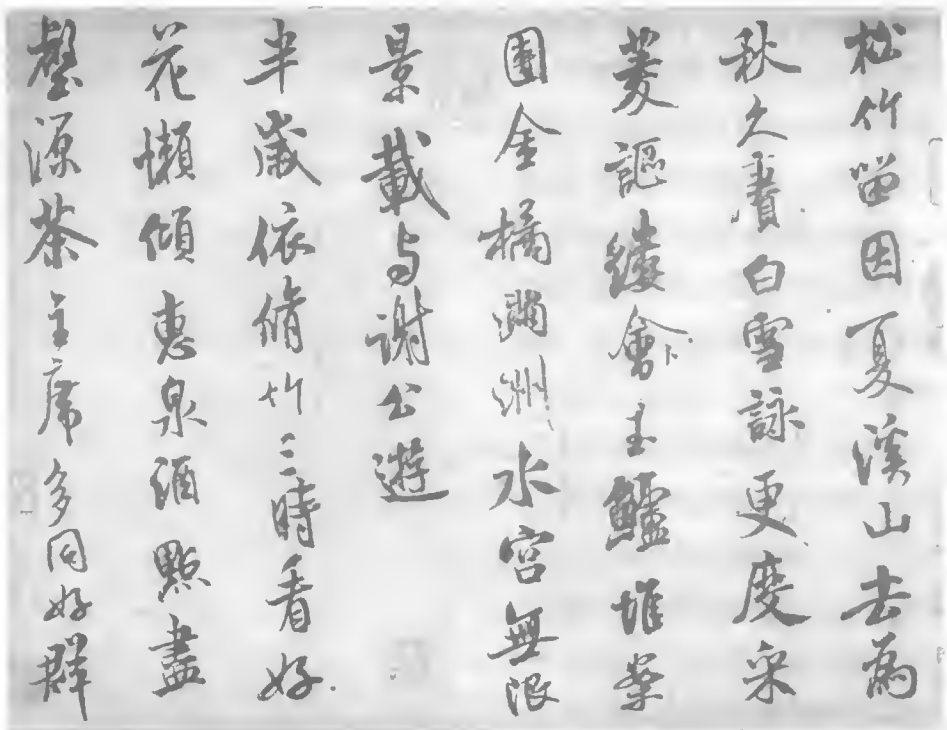 松竹留因夏溪山去為
秋久賡白雪詠更度采
菱謳縷會玉鱸堆案
團金橘滿洲水宮無限
景載与謝公遊
半歲依脩竹三時看好
花懶傾惠泉酒點盡
壑源茶主席多同好群